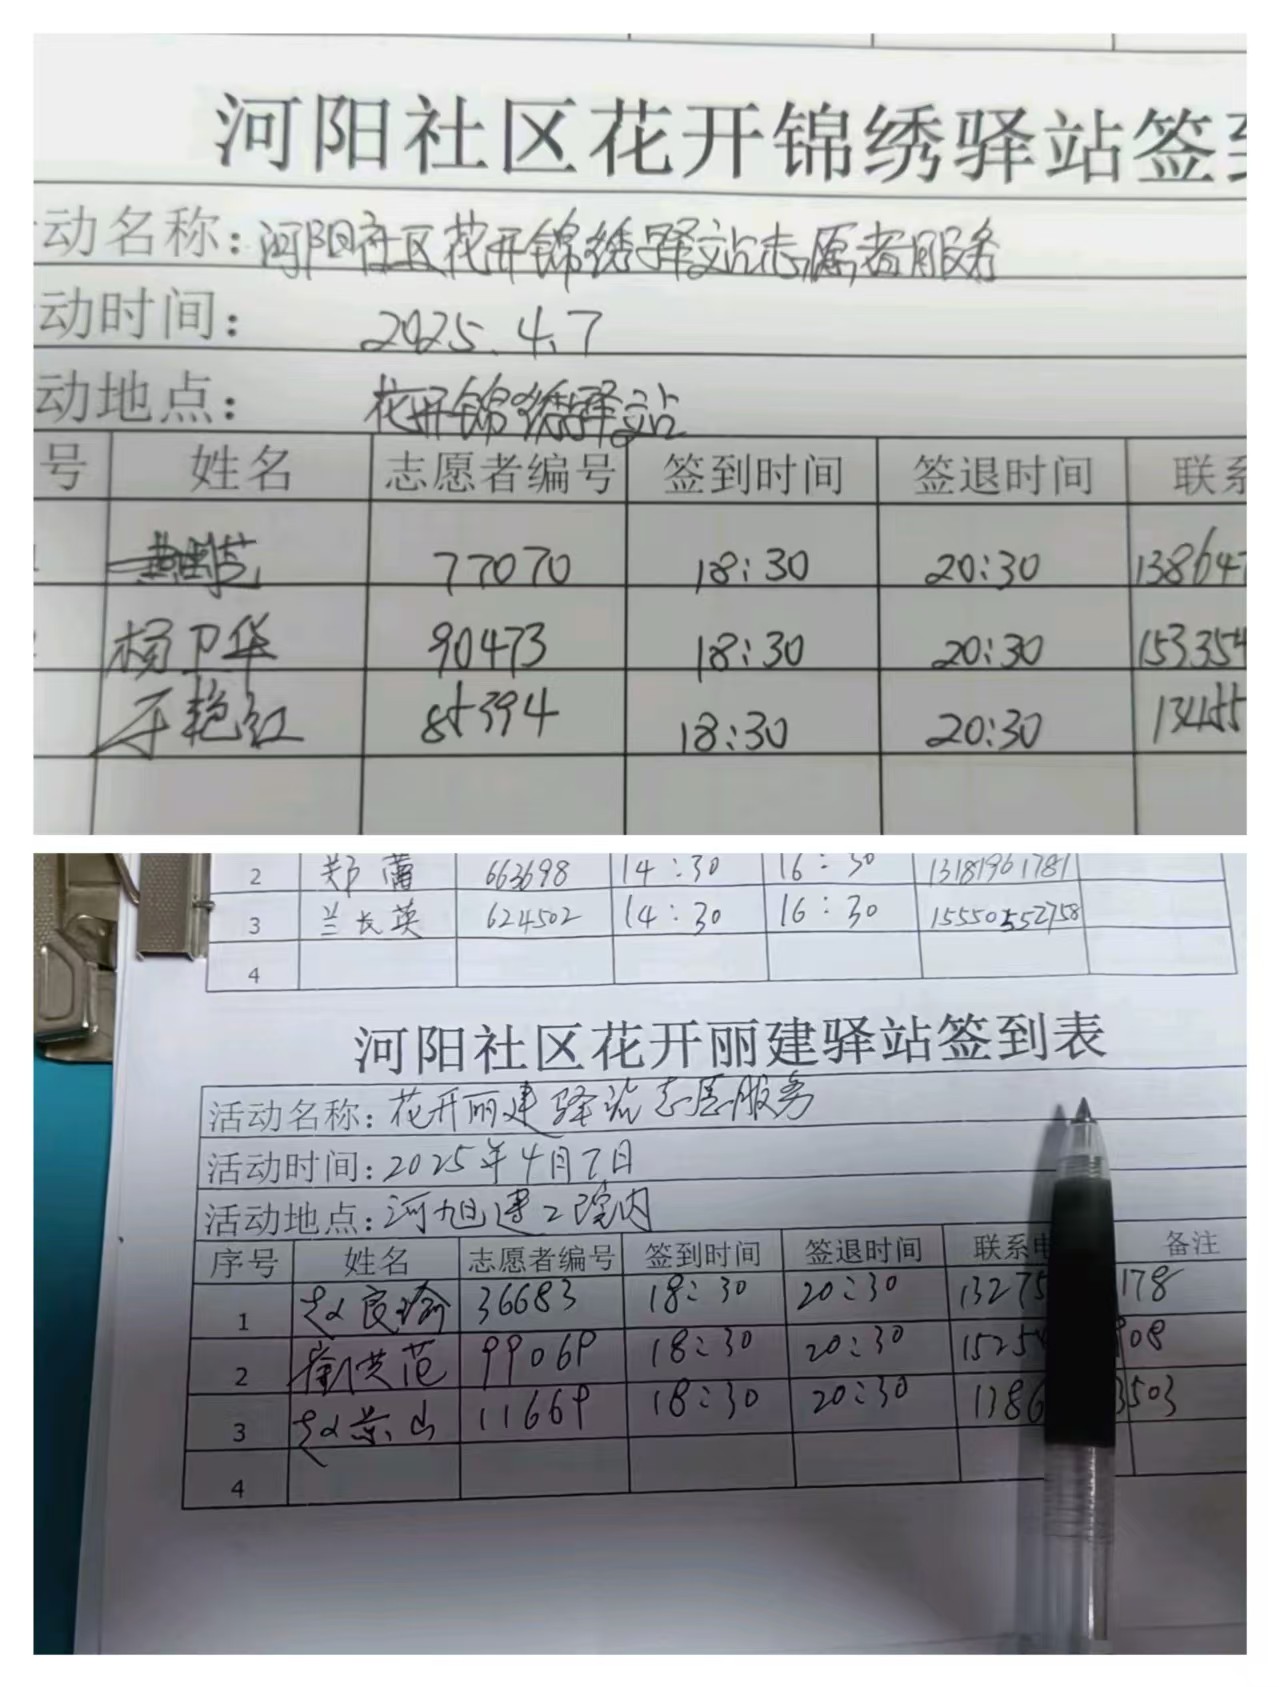 河阳社区花开锦绣驿站签到
动名称：河阳社区花开锦绣驿站志愿者服务
动时间： 2025.4.7
动地点： 花开锦绣驿站
号 姓名 志愿者编号 签到时间 签退时间 联系
77070 18:30 20:30 138647
杨卫华 90473 18:30 20:30 153354
于艳红 85394 18:30 20:30 13455
2 郑蕾 663698 14:30 16:30 13181961781
3 兰长英 624502 14:30 16:30 15550552758
4
河阳社区花开丽建驿站签到表
活动名称：花开丽建驿站志愿服务
活动时间：2025年4月7日
活动地点：河旭建工院内
序号 姓名 志愿者编号 签到时间 签退时间 联系电 备注
1 赵良瑜 36683 18:30 20:30 13275 178
2 洪范 99069 18:30 20:30 15254 08
3 赵景山 11669 18:30 20:30 1386 3503
4